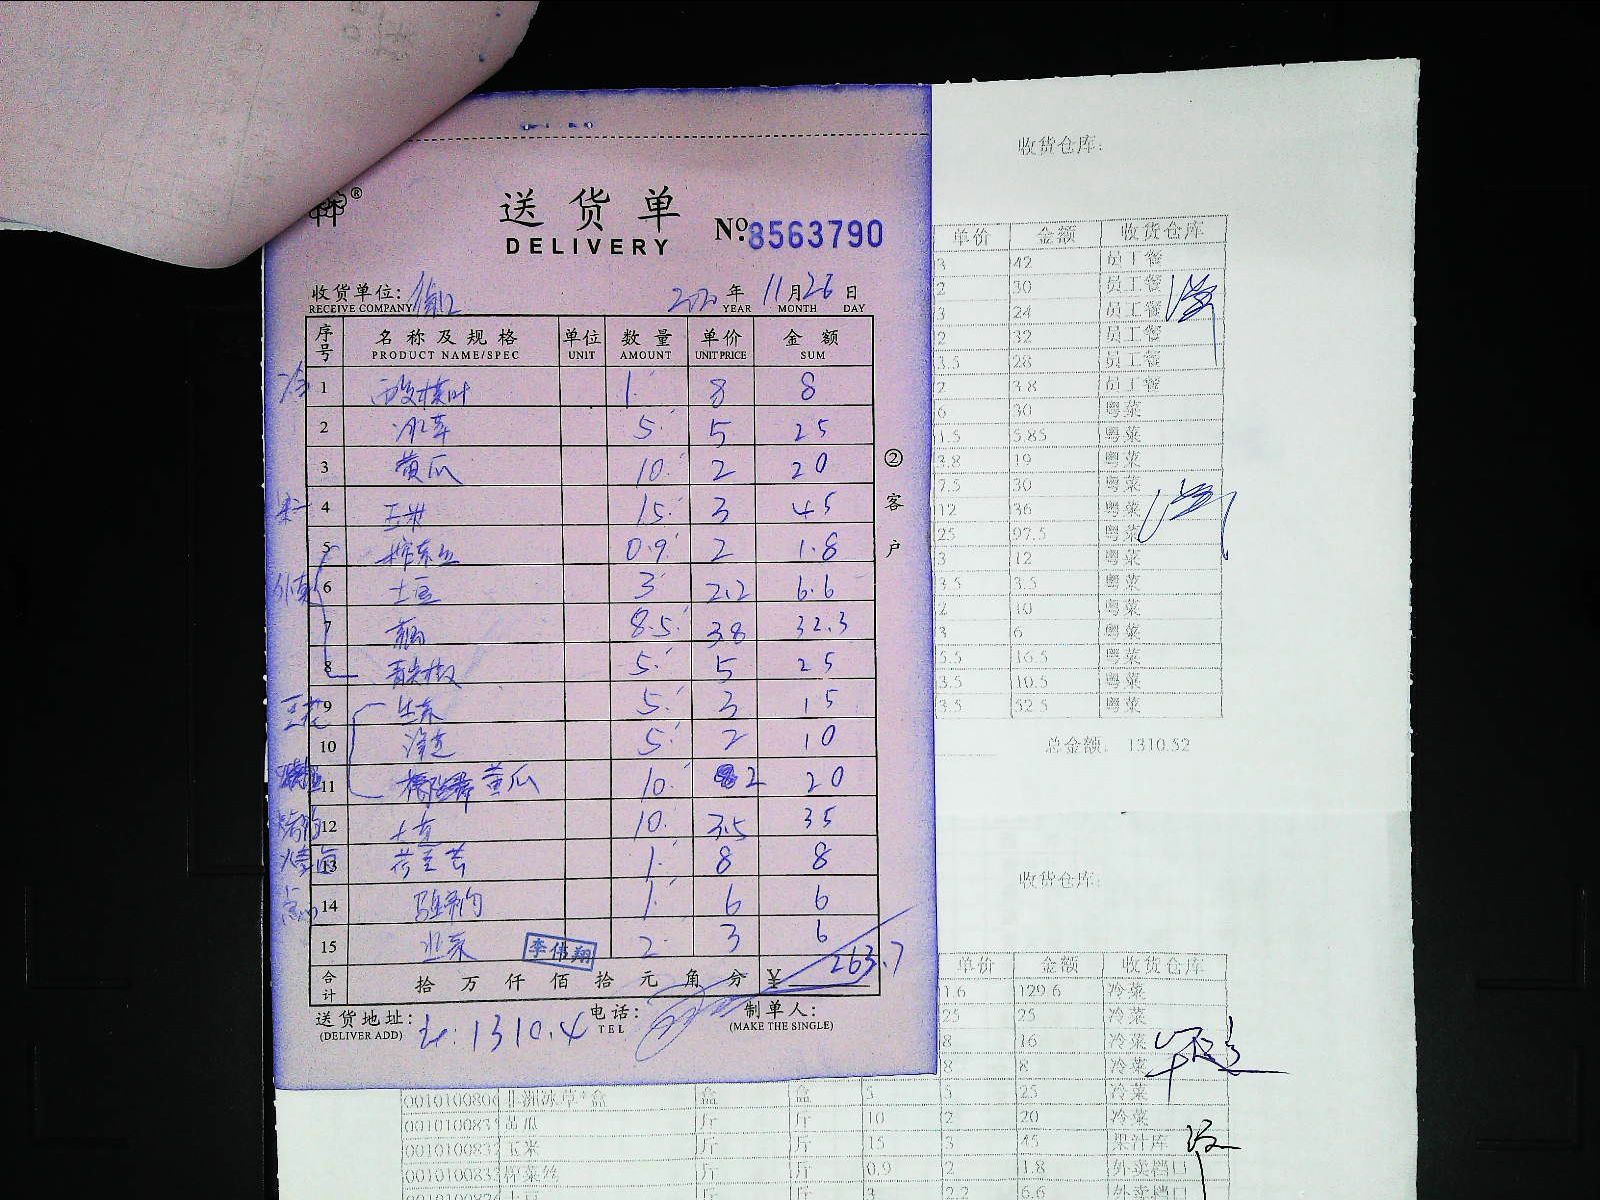 送货单
DELIVERY
№:8563790
收货单位:
RECEIVE COMPANY
年 11月26日
YEAR MONTH DAY
序号 名称及规格 单位 数量 单价 金额
PRODUCT NAME/SPEC UNIT AMOUNT UNIT PRICE SUM
1 1 8 8
2 冰草 5 5 25
3 黄瓜 10 2 20
4 玉米 15 3 45
5 榨菜丝 0.9 2 1.8
6 土豆 3 2.2 6.6
7 8.5 3.8 32.3
8 5 5 25
9 生菜 5 3 15
10 5 2 10
11 黄瓜 10 2 20
12 土豆 10 3.5 35
13 1 8 8
14 1 6 6
15 2 3 6
李伟翔
合计 拾 万 仟 佰 拾 元 角 分 ¥ 263.7
送货地址: 电话: 制单人:
(DELIVER ADD) TEL (MAKE THE SINGLE)
1310.4
②客户
收货仓库:
单价 金额 收货仓库
3 42 员工餐
2 30 员工餐
3 24 员工餐
2 32 员工餐
3.5 28 员工餐
2 3.8 员工餐
6 30 粤菜
1.5 5.85 粤菜
3.8 19 粤菜
7.5 30 粤菜
12 36 粤菜
25 97.5 粤菜
3 12 粤菜
3.5 3.5 粤菜
2 10 粤菜
3 6 粤菜
5.5 16.5 粤菜
3.5 10.5 粤菜
3.5 32.5 粤菜
总金额: 1310.52
收货仓库:
单价 金额 收货仓库
1.6 129.6 冷菜
25 25 冷菜
8 16 冷菜
8 8 冷菜
非洲冰草*盒 盒 盒 5 5 25 冷菜
黄瓜 斤 斤 10 2 20 冷菜
玉米 斤 斤 15 3 45 果汁库
榨菜丝 斤 斤 0.9 2 1.8 外卖档口
土豆 斤 斤 3 2.2 6.6 外卖档口